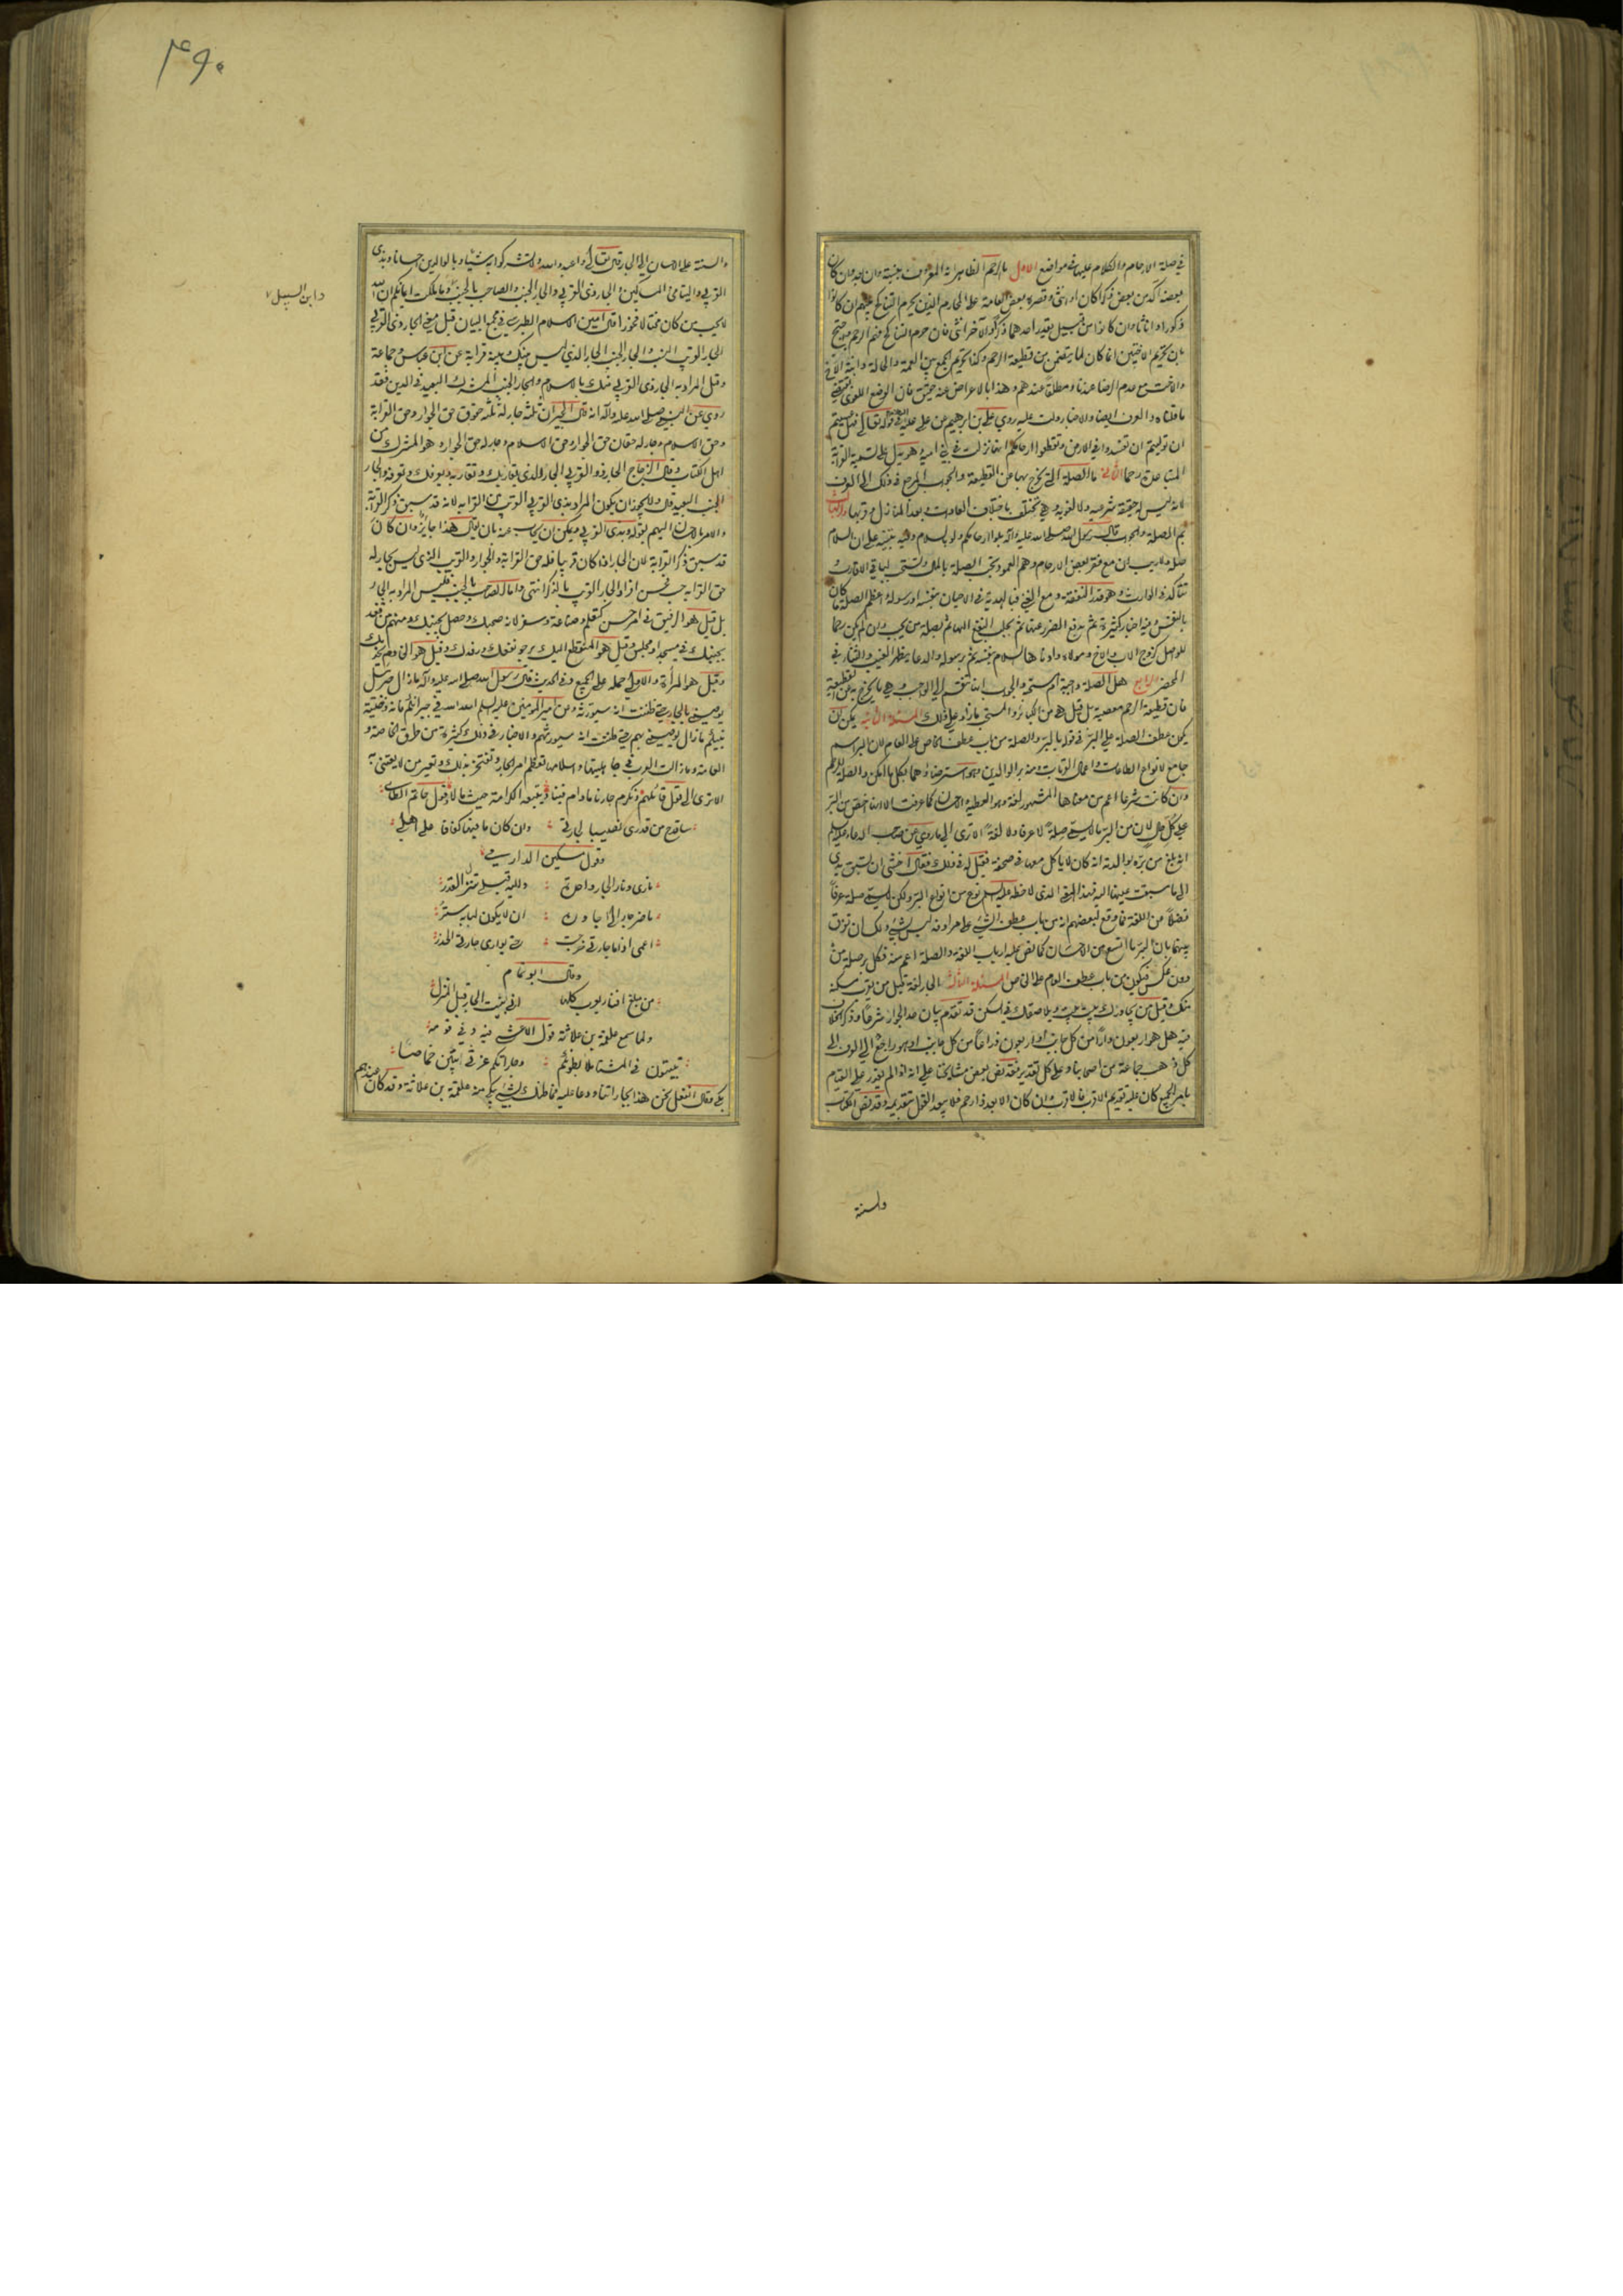 في صلة الارحام والكلام عليها في مواضع الاول ما الرحم الظاهر انه المعروف بنسبه وان بعد وان كان
بعضه آكد من بعض ذكرا كان او انثى وقصره بعض العامة على المحارم الذين يحرم التناكح بينهم ان كانوا
ذكورا واناثا وان كانوا من قبيل يقدر احدهما ذكرا والآخر انثى فان حرم التناكح فهم الرحم
بان تحريم الاختين انما كان لما يتضمن من قطيعة الرحم وكذا تحريم الجمع بين العمة والخالة وابنة الاخ
والاخت مع عدم الرضا عندنا ومطلقا عندهم وهذا بالاعراض عنه حقيق فان الوضع اللغوي يقتضي
ما قلناه والعرف ايضا والاخبار دلت عليه روي علي بن ابرهيم عن علي عليه السلام في قوله تعالى فهل عسيتم
ان توليتم ان تفسدوا في الارض وتقطعوا ارحامكم انها نزلت في بني امية وهو يدل على تسمية القرابة
المتباعدة رحما الثاني ما الصلة التي يخرج بها عن القطيعة والجواب المرجع في ذلك الى العرف
لانه ليس له حقيقة شرعية ولا لغوية وهي تختلف باختلاف العادات وبعد المنازل وقربها الثالث
بم الصلة والجواب قال رسول الله صلى الله عليه وآله بلوا ارحامكم ولو بالسلام وفيه تنبيه على ان السلام
صلة ولا ريب ان مع فقر بعض الارحام وهم العمودان تجب الصلة بالمال وتستحب لباقي الاقارب
وتتأكد في الوارث وهو قدر النفقة ومع الغنى فبالهدية في الاحيان بنفسه او رسوله واعظم الصلة ما كان
بالنفس وفيه اخبار كثيرة ثم بدفع الضرر عنها ثم بجلب النفع اليها ثم بصلة من يحب وان لم يكن رحما
للواصل كزوجة الاب والاخ ومولاه وادناها السلام بنفسه ثم برسوله والدعاء بظهر الغيب والثناء في
المحضر الرابع هل الصلة واجبة ام مستحبة والجواب انها تنقسم الى الواجب وهو ما يخرج به عن القطيعة
فان قطيعة الرحم معصية بل قيل هي من الكبائر والمستحب ما زاد على ذلك المسئلة الثانية يمكن ان
يكون عطف الصلة على البر في قوله بالبر والصلة من باب عطف الخاص على العام لان البر اسم
جامع لانواع الطاعات واعمال القربات ومنه بر الوالدين وهو استرضاؤهما بكل ما امكن والصلة للرحم
وان كانت شرعا اعم من معناها المشهور لغة وهو العطية والاحسان كما عرفت الا انها اخص من البر
على كل حال لان من البر ما لا يسمى صلة لا عرفا ولا لغة الا ترى الى ما روي عن صاحب الدعاء عليه السلم
انه بلغ من بره بوالدته انه كان لا ياكل معها في صحفة فقيل له في ذلك فقال اخشى ان تسبق يدي
الى ما سبقت عينها اليه فهذا المعنى الذي لاحظه عليه السلم نوع من انواع البر ولكن لا يسمى صلة عرفا
فضلا عن اللغة فما وقع لبعضهم انه من باب عطف الشيء على مرادفه ليس بشيء ولك ان تفرق
بينهما بان البر ما اتسع من الاحسان كما نص عليه ارباب اللغة والصلة اعم منه فكل بر صلة من
دون عكس فيكون من باب عطف العام على الخاص المسئلة الثالثة الجار لغة قيل من يقرب مسكنه
منك وقيل من يجاورك بيت بيت ويلاصقك في السكن قد تقدم بيان حد الجوار شرعا وذكر الخلاف
فيه هل هو اربعون دارا من كل جانب او اربعون ذراعا من كل جانب او هو راجع الى العرف الى
كل ذهب جماعة من اصحابنا وعلى كل تقدير فقد نص بعض مشايخنا على انه اذا لم يقدر على القيام
بامر الجميع كان عليه تقديم الاقرب فالاقرب وان كان الابعد ذا رحم فلا يبعد القول بتقديمه وقد نص الكتاب
والسنة
۴۹۰
والسنة على الاحسان الى الجار قال تعالى واعبدوا الله ولا تشركوا به شيئا وبالوالدين احسانا وبذي
القربى واليتامى والمساكين والجار ذي القربى والجار الجنب والصاحب بالجنب وما ملكت ايمانكم ان الله
وابن السبيل
لا يحب من كان مختالا فخورا قال امين الاسلام الطبرسي في مجمع البيان قيل معنى الجار ذي القربى
الجار القريب النسب والجار الجنب الجار الذي ليس بينك وبينه قرابة عن ابن عباس وجماعة
وقيل المراد به الجار ذي القربى منك بالاسلام والجار الجنب المشرك البعيد في الدين فقد
روي عن النبي صلى الله عليه وآله انه قال الجيران ثلثة جار له ثلثة حقوق حق الجوار وحق القرابة
وحق الاسلام وجار له حقان حق الجوار وحق الاسلام وجار له حق الجوار وهو المشرك من
اهل الكتاب وقال الزجاج الجار ذو القربى الجار الذي يقاربك وتقاربه ويعرفك وتعرفه والجار
الجنب البعيد قال ولا يجوز ان يكون المراد بذي القربى القريب من القرابة لانه قد سبق ذكر القرابة
والامر بالاحسان اليهم بقوله وبذي القربى ويمكن ان يجاب عنه بان يقال هذا جايز وان كان
قد سبق ذكر القرابة لان الجار اذا كان قريبا فله حق القرابة والجوار والقريب الذي ليس بجار له
حق القرابة حسب فحسن افراد الجار القريب بالذكر انتهى واما الصاحب بالجنب فليس المراد به الجار
بل قيل هو الرفيق في امر حسن كتعلم وصناعة وسفر لانه صحبك وحصل بجنبك ومنهم من قعد
بجنبك في مسجد او مجلس وقيل هو المنقطع اليك يرجو نفعك ورفدك وقيل هو الخادم يخدمك
وقيل هو المرأة والاولى حمله على الجميع وفي الحديث قال رسول الله صلى الله عليه وآله ما زال جبرئيل
يوصيني بالجار حتى ظننت انه سيورثه وعن امير المؤمنين عليه السلم الله الله في جيرانكم فانه وصية
نبيكم ما زال يوصيني بهم حتى ظننت انه سيورثهم والاخبار في ذلك كثيرة من طرق الخاصة و
العامة وما زالت العرب في جاهليتها واسلامها تعظم امر الجار وتفتخر بذلك وتعير من لا يعتني به
الا ترى الى قول قائلهم ونكرم جارنا ما دام فينا ونتبعه الكرامة حيث مالا وقول حاتم الطائي
ساقدح من قدري نصيبا لجارتي وان كان ما فيها كفافا على اهلي
وقول مسكين الدارمي
ناري ونار الجار واحدة واليه قبلي تنزل القدر
ما ضر جارا لي اجاوره ان لا يكون لبابه ستر
اعمى اذا ما جارتي خرجت حتى يواري جارتي الخدر
وقال ابو تمام
من مبلغ افناء يعرب كلها اني بنيت الجار قبل المنزل
ولما سمع علقمة بن علاثة قول الاعشى فيه وفي قومه
تبيتون في المشتا ملاء بطونكم وجاراتكم غرثى يبتن خماصا
بكى وقال انفعل نحن هذا بجاراتنا ودعا عليه فما ظنك بشيء يبكي منه علقمة بن علاثة وقد كان عندهم